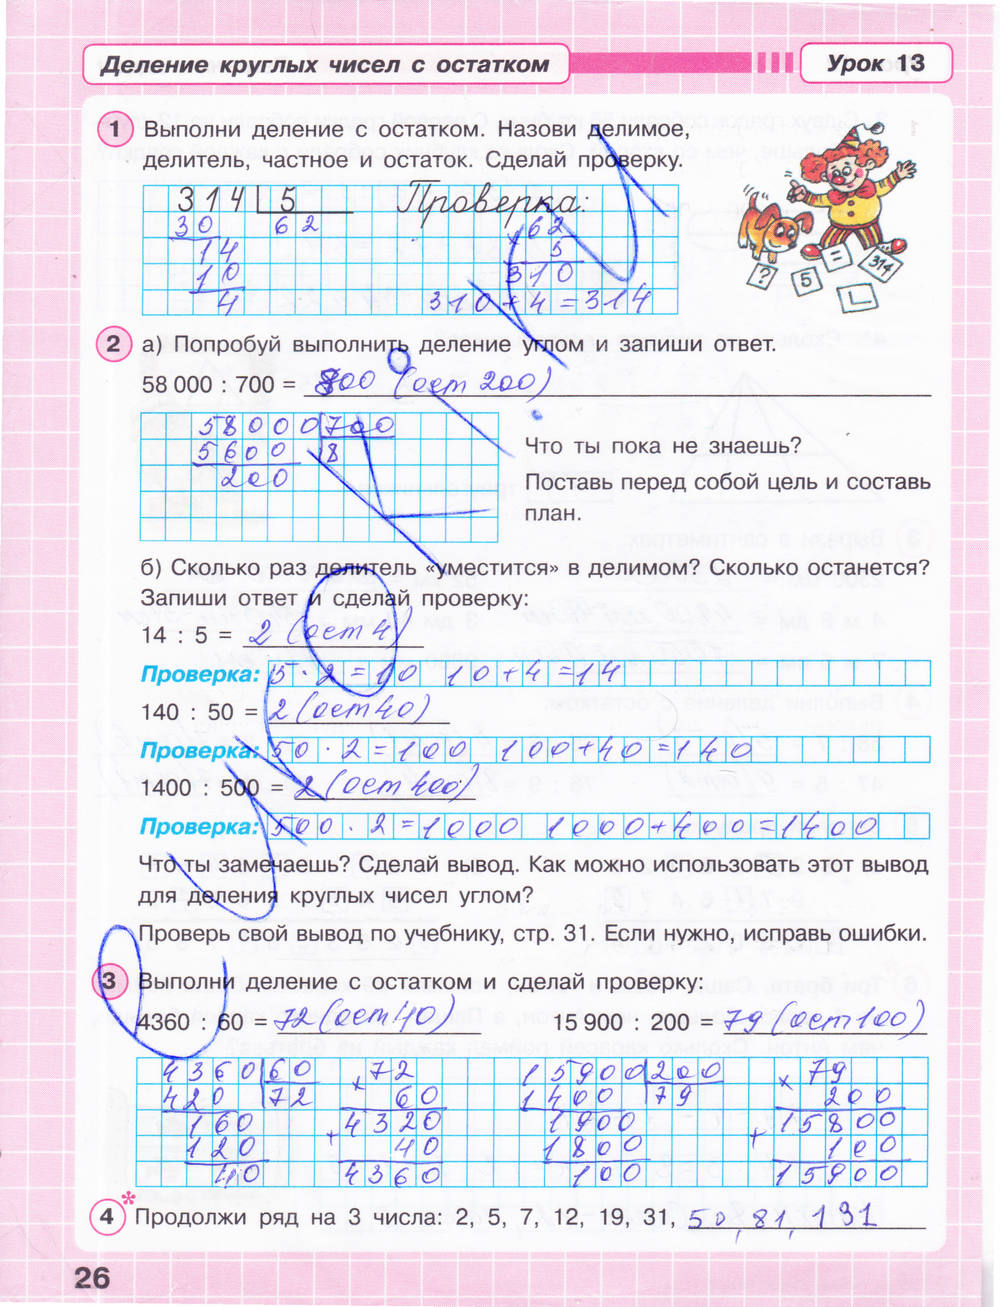 Деление круглых чисел с остатком
Урок 13
1 Выполни деление с остатком. Назови делимое,
делитель, частное и остаток. Сделай проверку.
314 5 Проверка:
30 62 × 62
14 5
10 310
4 310 + 4 = 314
? 5 = 314
2 а) Попробуй выполнить деление углом и запиши ответ.
58 000 : 700 = 800 (ост 200)
58000 700
5600 8
200
Что ты пока не знаешь?
Поставь перед собой цель и составь
план.
б) Сколько раз делитель «уместится» в делимом? Сколько останется?
Запиши ответ и сделай проверку:
14 : 5 = 2 (ост 4)
Проверка: 5 · 2 = 10 10 + 4 = 14
140 : 50 = 2 (ост 40)
Проверка: 50 · 2 = 100 100 + 40 = 140
1400 : 500 = 2 (ост 400)
Проверка: 500 · 2 = 1000 1000 + 400 = 1400
Что ты замечаешь? Сделай вывод. Как можно использовать этот вывод
для деления круглых чисел углом?
Проверь свой вывод по учебнику, стр. 31. Если нужно, исправь ошибки.
3 Выполни деление с остатком и сделай проверку:
4360 : 60 = 72 (ост 40) 15 900 : 200 = 79 (ост 100)
4360 60 × 72 15900 200 × 79
420 72 60 1400 79 200
160 + 4320 1900 + 15800
120 40 1800 100
40 4360 100 15900
4* Продолжи ряд на 3 числа: 2, 5, 7, 12, 19, 31, 50, 81, 131
26